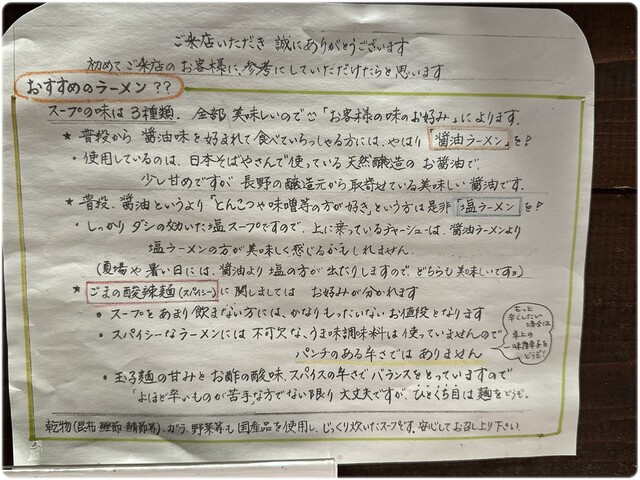 ご来店いただき 誠にありがとうございます
初めてご来店のお客様に、参考にしていただけたらと思います
おすすめのラーメン??
スープの味は3種類. 全部 美味しいので☺「お客様の味のお好み」によります.
★ 普段から 醤油味を好まれて食べていらっしゃる方には、やはり「醤油ラーメン」を!
・使用しているのは、日本そばやさんで使っている天然醸造のお醤油で、
少し甘めですが 長野の醸造元から取寄せている美味しい醤油です.
★ 普段、醤油というより「とんこつや味噌等の方が好き」という方は是非「塩ラーメン」を!
・しっかりダシの効いた塩スープですので、上に乗っているチャーシューは、醤油ラーメンより
塩ラーメンの方が美味しく感じるかもしれません.
(夏場や暑い日には、醤油より 塩の方が出たりしますので、どちらも美味しいです)
★ ごまの酸辣麺(スパイシー)に関しましては お好みが分かれます
・スープをあまり飲まない方には、かなりもったいないお値段となります
・スパイシーなラーメンには不可欠な、うま味調味料は使っていませんので
パンチのある辛さではありません
もっと
辛くしたい
場合は
卓上の
唐辛子を
どうぞ!
・玉子麺の甘みとお酢の酸味、スパイスの辛さでバランスをとっていますので
「よほど辛いものが苦手な方でない限り 大丈夫ですが、ひとくち目は麺をどうぞ.
乾物(昆布 鰹節・鯖節等)・ガラ、野菜等も国産品を使用し、じっくり炊いたスープです。安心してお召し上り下さい.